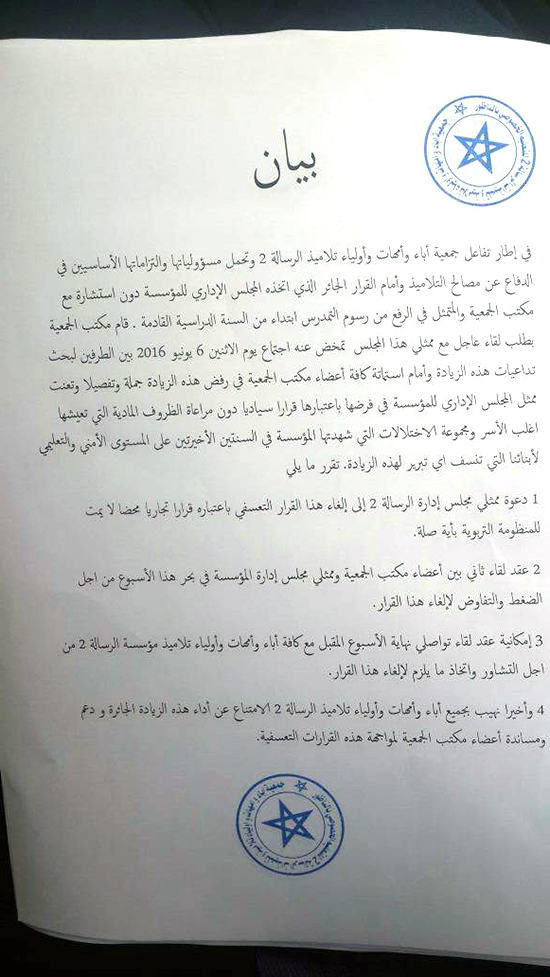 بيان
في إطار تفاعل جمعية أباء وأمهات وأولياء تلاميذ الرسالة 2 وتحمل مسؤولياتها والتزاماتها الأساسيين في
الدفاع عن مصالح التلاميذ وأمام القرار الجائر الذي اتخذه المجلس الإداري للمؤسسة دون استشارة مع
مكتب الجمعية والمتمثل في الرفع من رسوم التمدرس ابتداء من السنة الدراسية القادمة . قام مكتب الجمعية
بطلب لقاء عاجل مع ممثلي هذا المجلس تمخض عنه اجتماع يوم الاثنين 6 يونيو 2016 بين الطرفين لبحث
تداعيات هذه الزيادة وأمام استماتة كافة أعضاء مكتب الجمعية في رفض هذه الزيادة جملة وتفصيلا وتعنت
ممثل المجلس الإداري للمؤسسة في فرضها باعتبارها قرارا سياديا دون مراعاة الظروف المادية التي تعيشها
اغلب الأسر ومجموعة الاختلالات التي شهدتها المؤسسة في السنتين الأخيرتين على المستوى الأمني والتعليمي
لأبنائنا التي تنسف اي تبرير لهذه الزيادة. تقرر ما يلي
1 دعوة ممثلي مجلس إدارة الرسالة 2 إلى إلغاء هذا القرار التعسفي باعتباره قرارا تجاريا محضا لا يمت
للمنظومة التربوية بأية صلة.
2 عقد لقاء ثاني بين أعضاء مكتب الجمعية وممثلي مجلس إدارة المؤسسة في بحر هذا الأسبوع من اجل
الضغط والتفاوض لإلغاء هذا القرار.
3 إمكانية عقد لقاء تواصلي نهاية الأسبوع المقبل مع كافة أباء وأمهات وأولياء تلاميذ مؤسسة الرسالة 2 من
اجل التشاور واتخاذ ما يلزم لإلغاء هذا القرار.
4 وأخيرا نهيب بجميع أباء وأمهات وأولياء تلاميذ الرسالة 2 الامتناع عن أداء هذه الزيادة الجائرة و دعم
ومساندة أعضاء مكتب الجمعية لمواجهة هذه القرارات التعسفية.